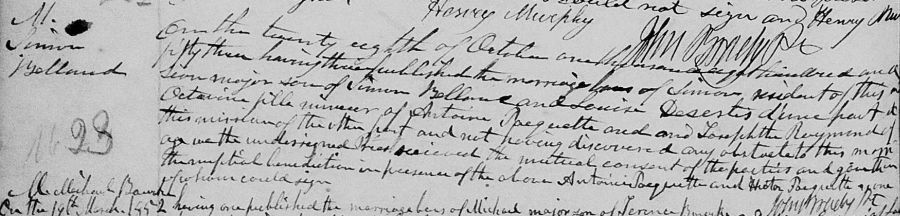 could not sign and Henry
Harvey Murphy
M.
Simon
Belland
On the twenty eighth of October one thousand eight hundred and
fifty three having thrice published the marriage bans of Simon, resident of this
sion major son of Simon Belland and Louise Deserts d'une part &
Octavine fille mineur of Antoine Paquette and and Josephte Raymond of
this mission of the other part and not having discovered any obstacle to this marri
age we the undersigned Priest, recieved the mutual consent of the parties and gave them
the nuptial benediction in presence of the above Antoine Paquette and Hector Paquette
of whom could sign
John Brady Pt
M. Michael
On the 19th March 1852 having one published the marriage bans of Michael major son of Terence